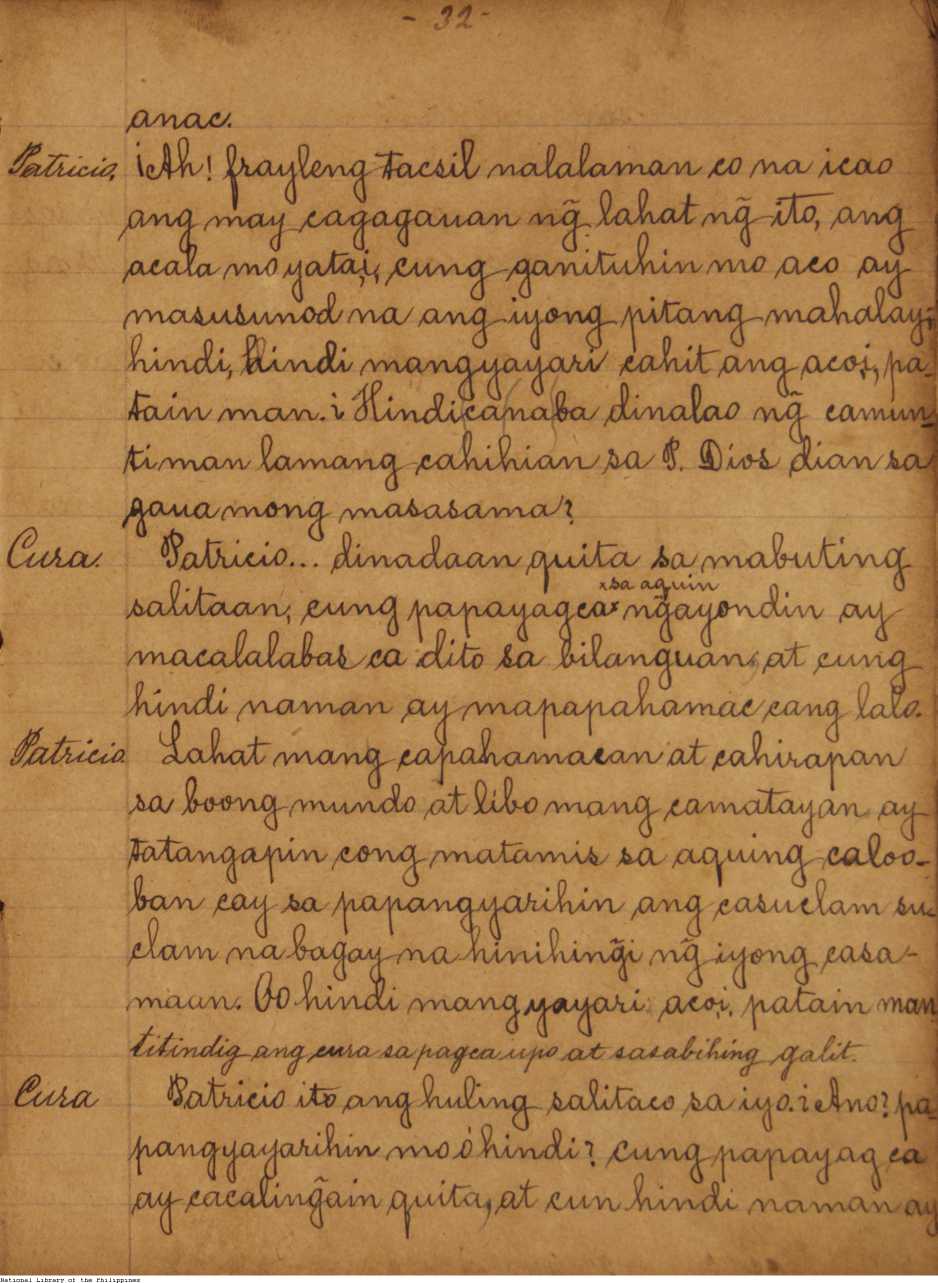 - 32 -
anac.
Patricio. ¡Ah! frayleng tacsil nalalaman co na icao
ang may cagagauan ng̃ lahat ng̃ ito, ang
acala mo yata,i, cung ganituhin mo aco ay
masusunod na ang iyong pitang mahalay;
hindi, hindi mangyayari cahit ang aco,i, pa-
tain man. ¿Hindi canaba dinalao ng̃ camun-
ti man lamang cahihian sa P. Dios dian sa
gaua mong masasama?
Cura. Patricio... dinadaan quita sa mabuting
salitaan, cung papayag ca ˣsa aquinˣ ng̃ayondin ay
macalalabas ca dito sa bilanguan, at cung
hindi naman ay mapapahamac cang lalo.
Patricio Lahat mang capahamacan at cahirapan
sa boong mundo at libo mang camatayan ay
tatangapin cong matamis sa aquing caloo-
ban cay sa papangyarihin ang casuclam su-
clam na bagay na hinihing̃i ng̃ iyong casa-
maan. Oo hindi mangyayari aco,i, patain man
titindig ang cura sa pagca upo at sasabihing galit.
Cura Patricio ito ang huling salitaco sa iyo. ¿Ano? pa-
pangyayarihin mo ó hindi? cung papayag ca
ay cacaling̃ain quita, at cun hindi naman ay
National Library of the Philippines